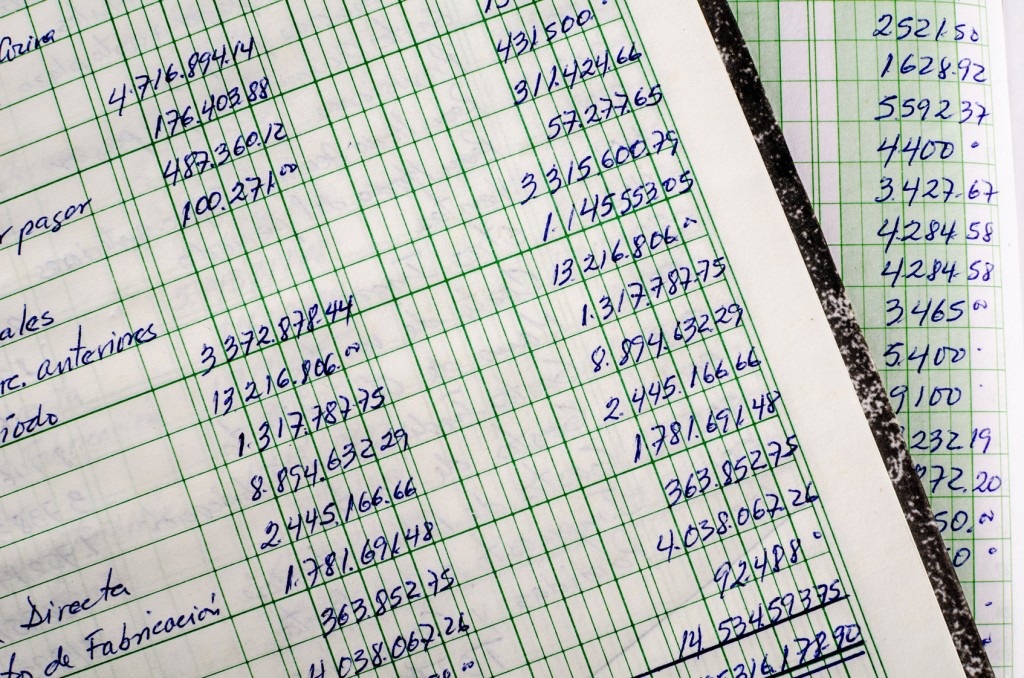 4.716.894.14
176.403.88
487.360.12
pagar 100.271.00
ales
anteriores 3 372.878.44
iodo 13 216.806.00
1.317.787.75
8.894.632 29
2 445.166.66
Directa 1.781.691.48
de Fabricación 363.852.75
4 038.067.26
431 500.
311.424.66
57.277.65
3 315 600.79
1.145 553 05
13 216.806.00
1.317.787.75
8.894.632.29
2.445.166 66
1 781.691 48
363.852 75
4.038.067.26
92.488
14 534.459 3 75
5 316.178 90
2521.50
1628.92
5592 37
4400
3.427.67
4284 58
4284 58
3465 00
5.400
9100
232 19
72.20
50.00
0